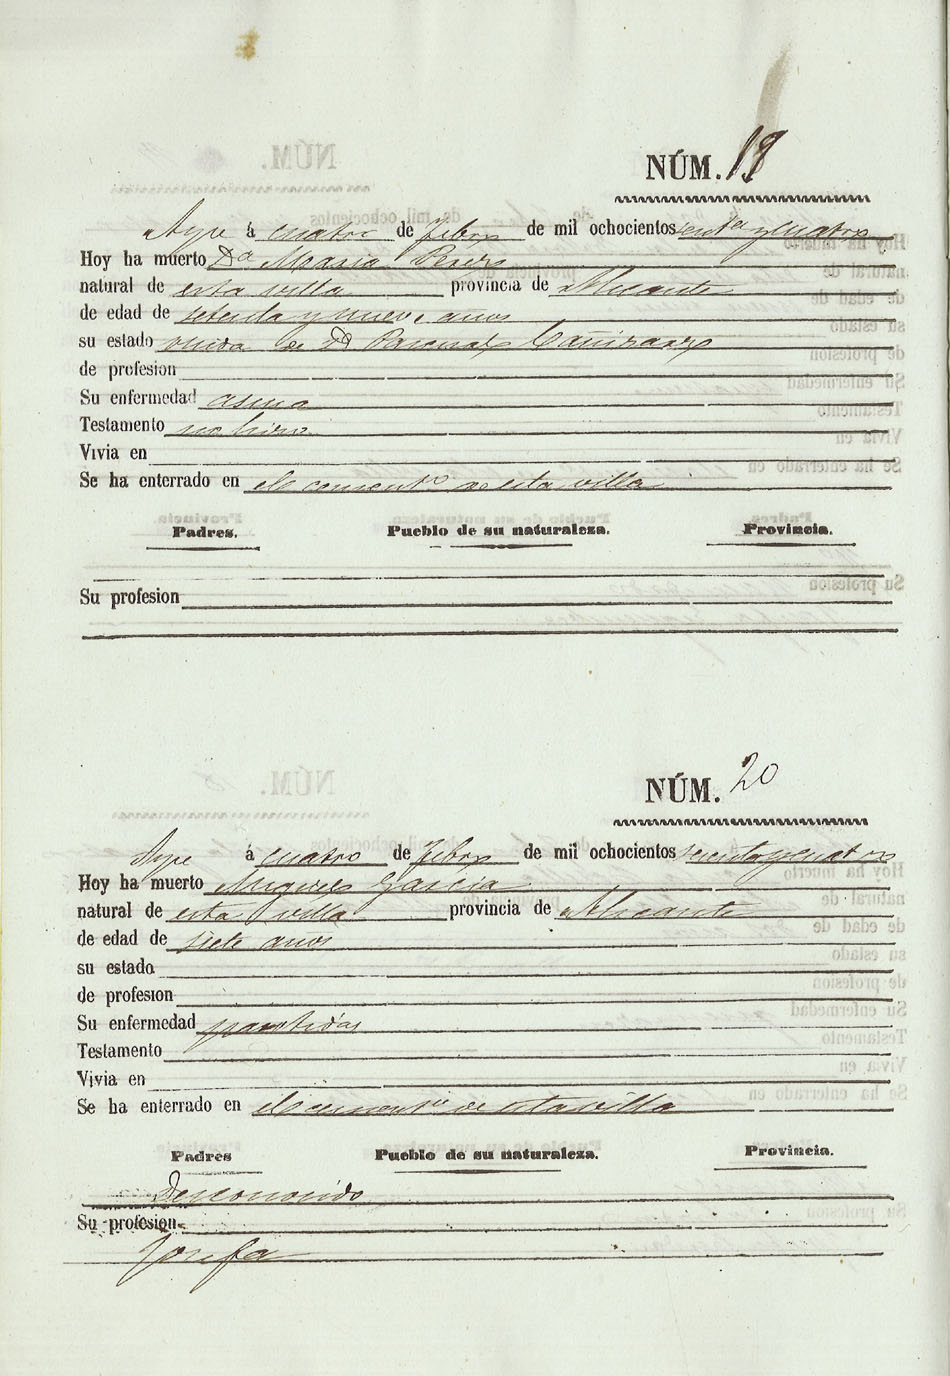 NÚM. 19
Aspe á cuatro de Febro de mil ochocientos senta y cuatro
Hoy ha muerto Da Maria Perez
natural de esta villa provincia de Alicante
de edad de setenta y nueve años
su estado viuda de Dn Pascual Cañizares
de profesion
Su enfermedad asma
Testamento no hizo
Vivia en
Se ha enterrado en el cementro de esta villa
Padres. Pueblo de su naturaleza. Provincia.
Su profesion
NÚM. 20
Aspe á cuatro de Febro de mil ochocientos sesenta y cuatro
Hoy ha muerto Miguel Garcia
natural de esta villa provincia de Alicante
de edad de siete años
su estado
de profesion
Su enfermedad
Testamento
Vivia en
Se ha enterrado en el cementro de esta villa
Padres Pueblo de su naturaleza. Provincia.
Desconocido
Su profesion
Josefa